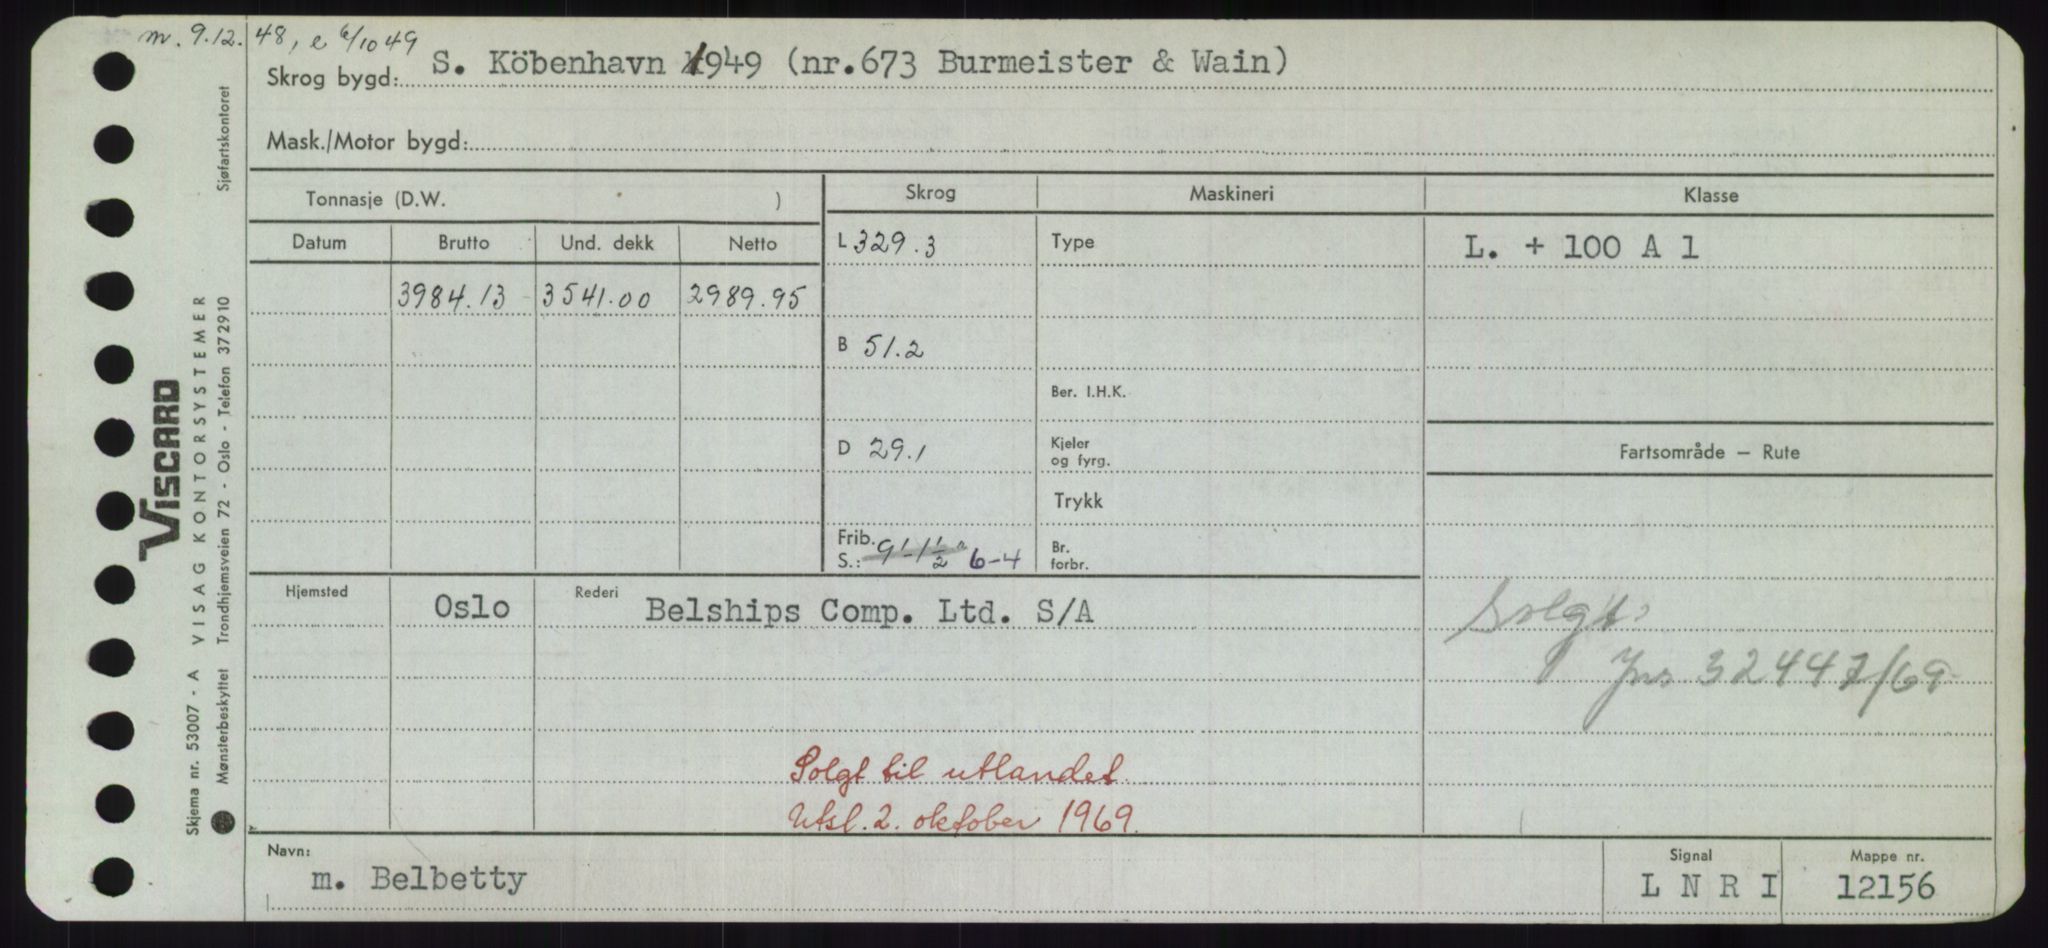 m. 9.12.48, e 6/10 49
Skrog bygd: S. Köbenhavn 1949 (nr.673 Burmeister & Wain)
Mask./Motor bygd:
Tonnasje (D.W. )
Skrog
Maskineri
Klasse
Datum
Brutto
Und. dekk
Netto
L 329.3
Type
L. + 100 A 1
3984.13
3541.00
2989.95
B 51.2
Ber. I.H.K.
D 29.1
Kjeler
og fyrg.
Fartsområde — Rute
Trykk
Frib.
S.: 9'-1½" 6-4
Br.
forbr.
Hjemsted
Oslo
Rederi
Belships Comp. Ltd. S/A
Solgt
Jnr 32447/69
Solgt til utlandet.
Utsl. 2. oktober 1969.
Navn:
m. Belbetty
Signal
L N R I
Mappe nr.
12156
VISCARD
Skjema nr. 53007 - A VISAG KONTORSYSTEMER
Mønsterbeskyttet Trondhjemsveien 72 - Oslo - Telefon 372910
Sjøfartskontoret